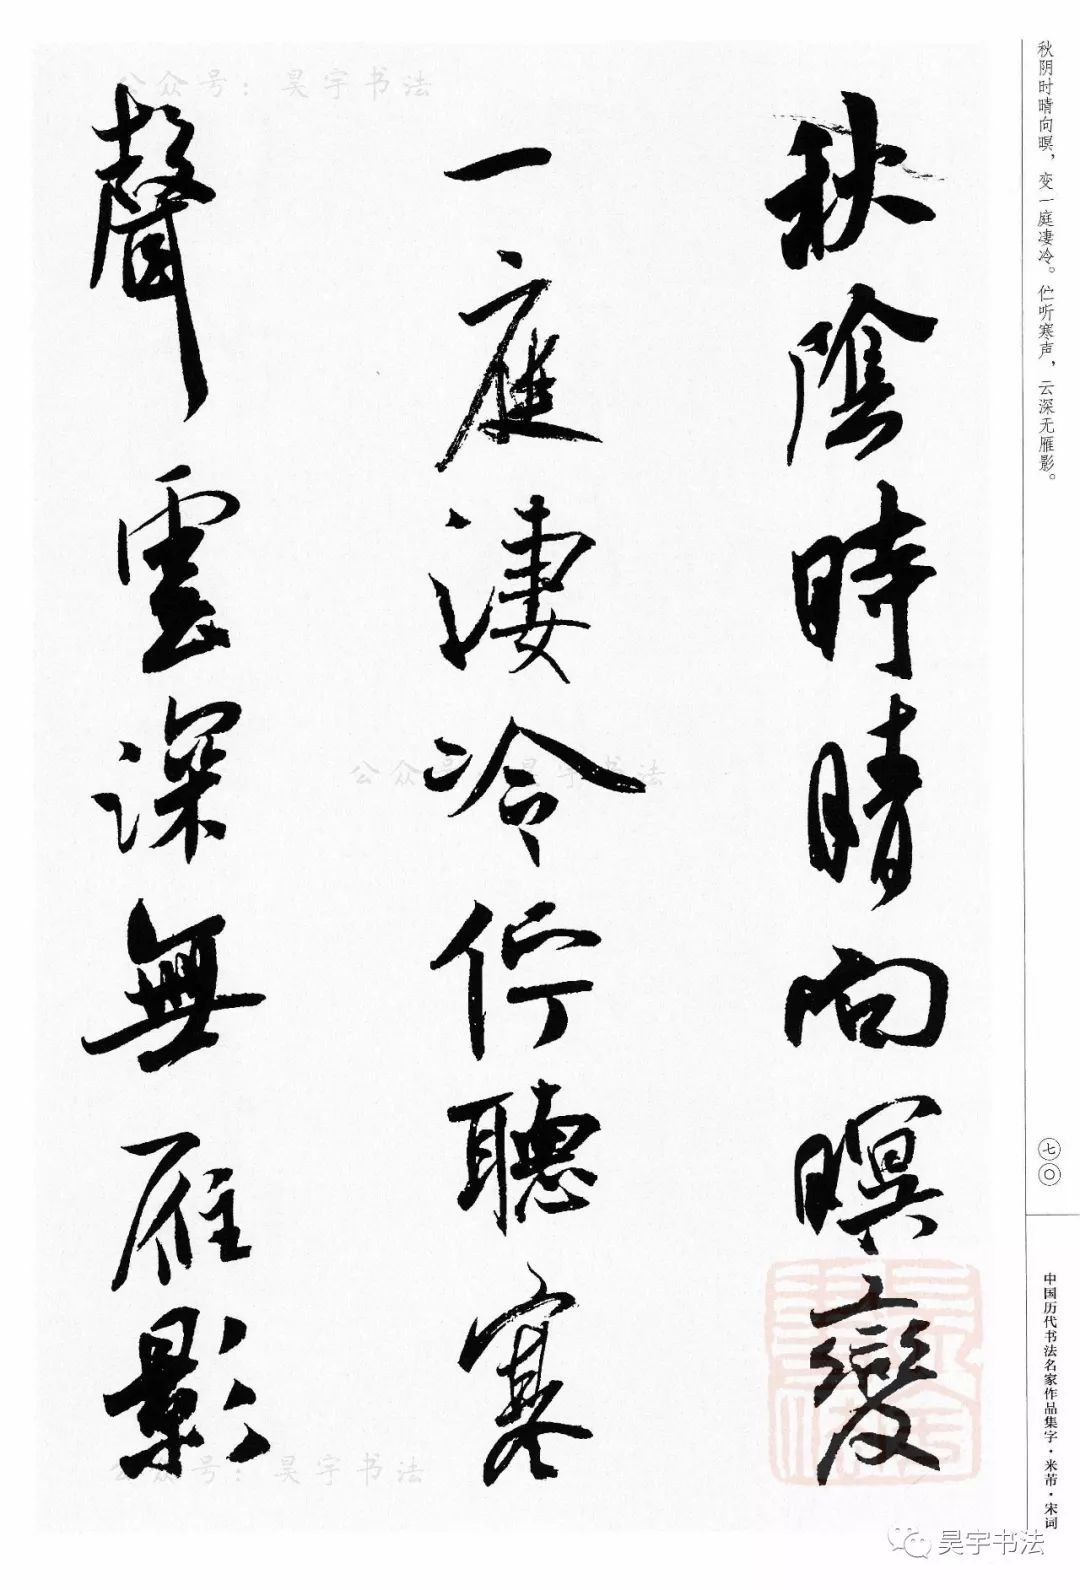 秋阴时晴向暝，变一庭凄冷。伫听寒声，云深无雁影。
七〇
中国历代书法名家作品集字·米芾·宋词
秋陰時晴向暝變
一庭淒冷佇聽寒
聲雲深無雁影
公众号：昊宇书法
公众号：昊宇书法
公众号：昊宇书法
昊宇书法